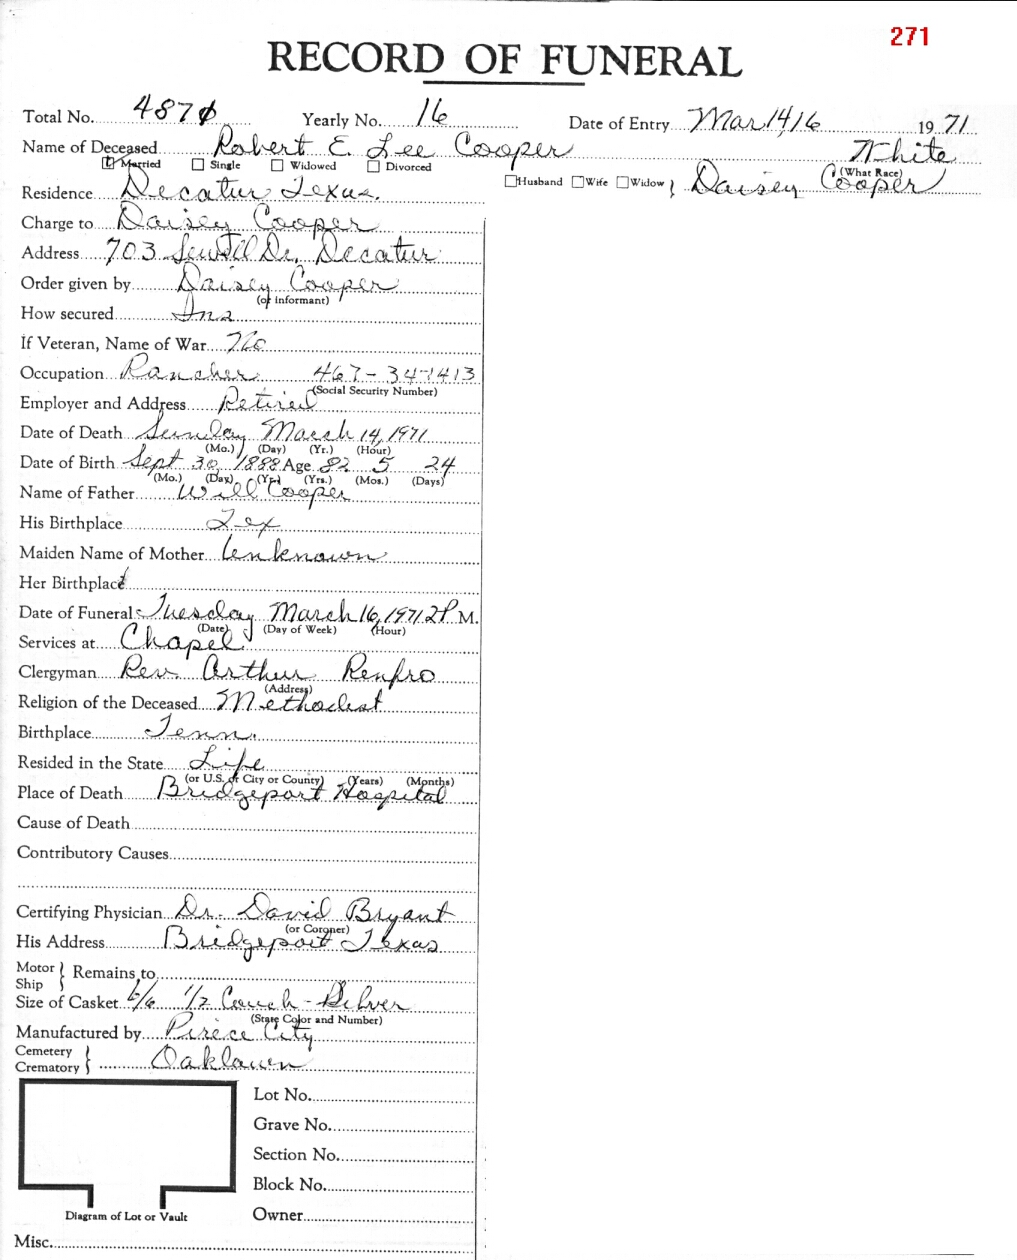 271
RECORD OF FUNERAL
Total No. 4870 Yearly No. 16 Date of Entry Mar 14,16 1971
Name of Deceased Robert E. Lee Cooper White
Married Single Widowed Divorced (What Race)
Residence Decatur Texas. Husband Wife Widow } Daisey Cooper
Charge to Daisey Cooper
Address 703 Dr. Decatur
Order given by Daisey Cooper
(or informant)
How secured Ins
If Veteran, Name of War No
Occupation Rancher 467-34-1413
(Social Security Number)
Employer and Address Retired
Date of Death Sunday March 14, 1971
(Mo.) (Day) (Yr.) (Hour)
Date of Birth Sept 30 1888 Age 82 5 24
(Mo.) (Day) (Yr.) (Yrs.) (Mos.) (Days)
Name of Father Will Cooper
His Birthplace Tex
Maiden Name of Mother Unknown
Her Birthplace
Date of Funeral Tuesday March 16, 1971 2P M.
(Date) (Day of Week) (Hour)
Services at Chapel
Clergyman Rev. Arthur Renfro
(Address)
Religion of the Deceased Methodist
Birthplace Tenn.
Resided in the State Life
(or U.S. or City or County) (Years) (Months)
Place of Death Bridgeport Hospital
Cause of Death
Contributory Causes
Certifying Physician Dr. David Bryant
(or Coroner)
His Address Bridgeport Texas
Motor } Remains to
Ship
Size of Casket 6/6 1/2 Couch - Silver
(State Color and Number)
Manufactured by Pirece City
Cemetery } Oaklawn
Crematory
Lot No.
Grave No.
Section No.
Block No.
Owner
Diagram of Lot or Vault
Misc.